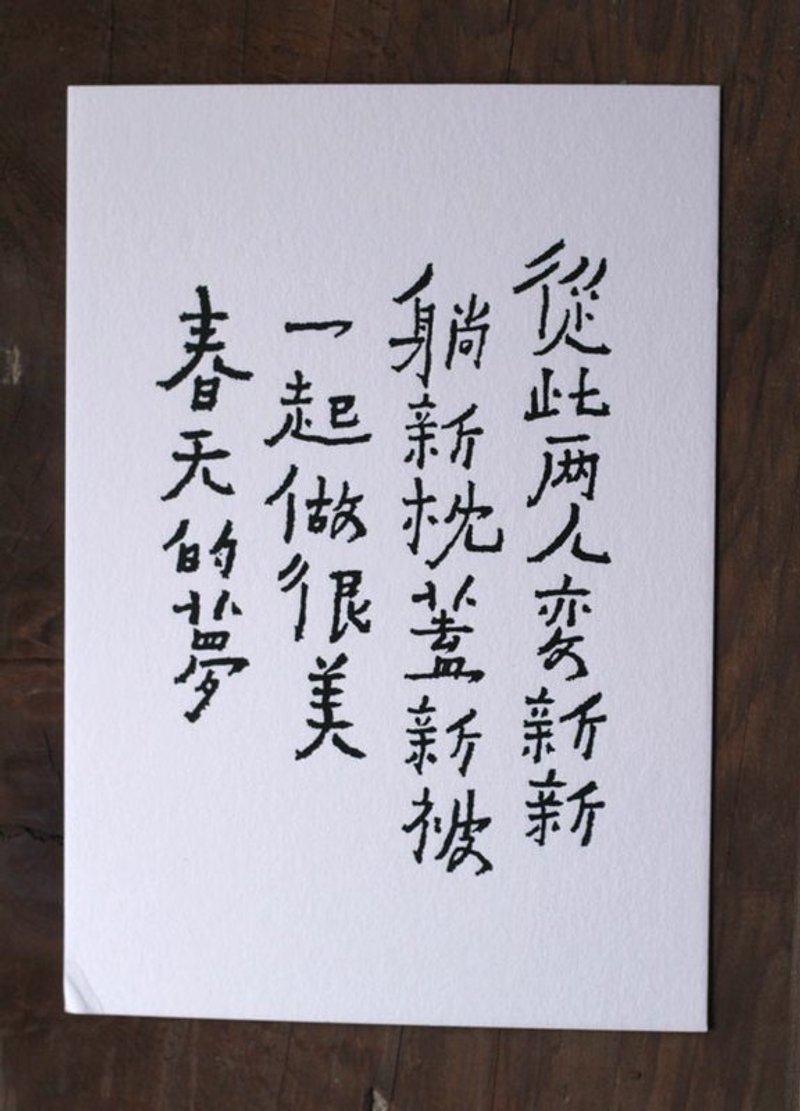 從此两人变新新
躺新枕蓋新被
一起做很美
春天的夢